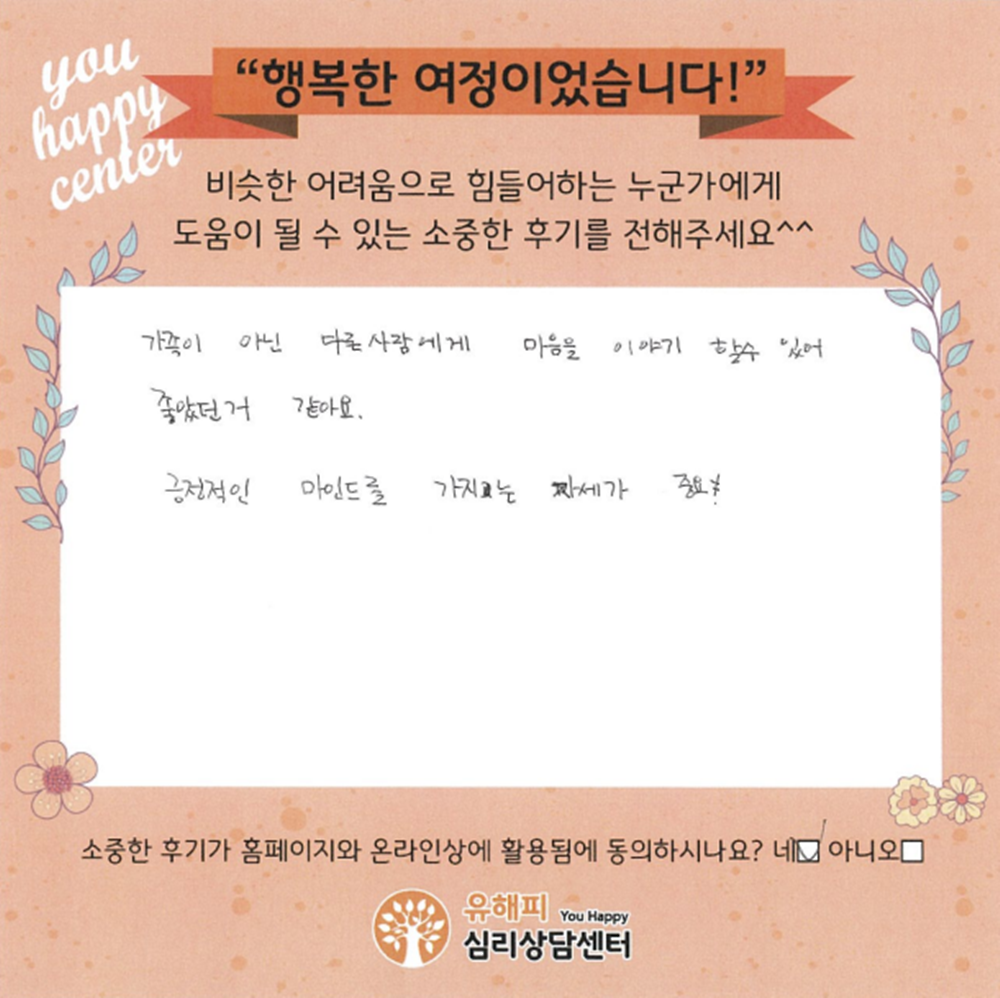 you
happy
center
“행복한 여정이었습니다!”
비슷한 어려움으로 힘들어하는 누군가에게
도움이 될 수 있는 소중한 후기를 전해주세요^^
가족이 아닌 다른사람에게 마음을 이야기 할수 있어
좋았던거 같아요.
긍정적인 마인드를 가지는 자세가 중요!
소중한 후기가 홈페이지와 온라인상에 활용됨에 동의하시나요? 네 아니오
유해피 You Happy
심리상담센터